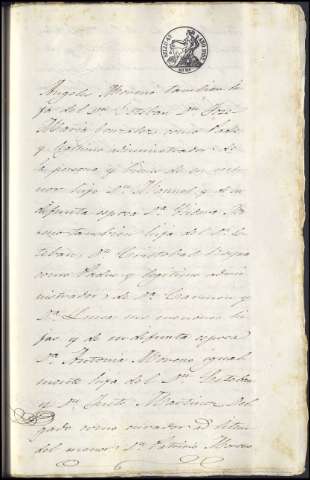 Angeles Moreno tambien hi-
ja del Dn. Esteban, Dn. José
Maria Gonzalez como Padre
y legitimo administrador de
la persona y bienes de su me-
nor hijo Dn. Manuel y de su
difunta esposa Dª. Moreno
tambien hija del Dn. Es-
teban, Dn. Cristobal
como Padre y legitimo admi-
nistrador, de Dª. Carmen y
Dª. Luisa sus menores hi-
jas y de su difunta esposa
Dª. Antonia Moreno igual-
mente hija del Dn. Esteban
y Dn. Justo Martinez Del-
gado como curador ad litem
del menor Dn. Moreno